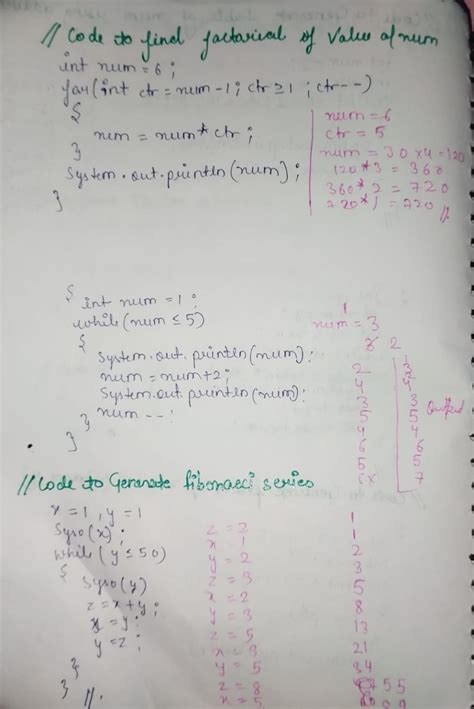 // Code to find factorical of Value of num
int num = 6 ;
for(int ctr = num - 1 ; ctr ≥ 1 ; ctr --)
{
num = num * ctr ;
}
System.out.println(num) ;
}
num = 6
ctr = 5
num = 30 x 4 = 120
120 * 3 = 360
360 * 2 = 720
720 * 1 = 720 //
{ int num = 1 ;
while(num ≤ 5)
{
System.out.println(num) ;
num = num+2 ;
System.out.println(num) ;
} num -- ;
}
1
num = 3
3 2
2
4
3
5
4
6
5
3
4
3
5
4
6
5
7
Output
// Code to Generate fibonacci series
x = 1 , y = 1
Syso(x) ;
while(y ≤ 50)
{
Syso(y)
z = x + y ;
x = y ;
y = z ;
}
} //.
z = 2
x = 1
y = 2
z = 3
x = 2
y = 3
z = 5
x = 3
y = 5
z = 8
x = 5
1
1
2
3
5
8
13
21
34
55